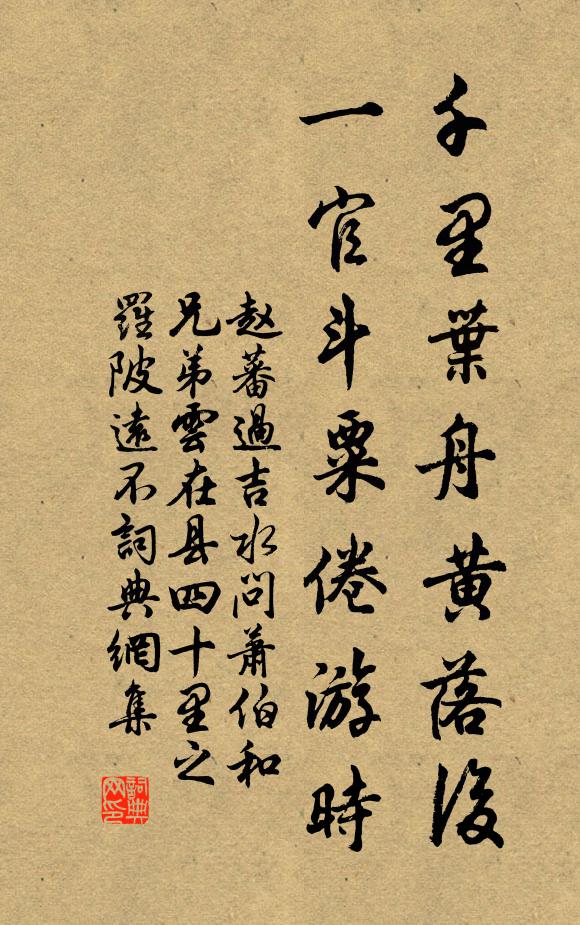 千里葉舟黃落後
一官斗粟倦游時
赵蕃過吉水問蕭伯和
兄弟雲在县四十里之
羅陂遠不詞典網集
詞典网印